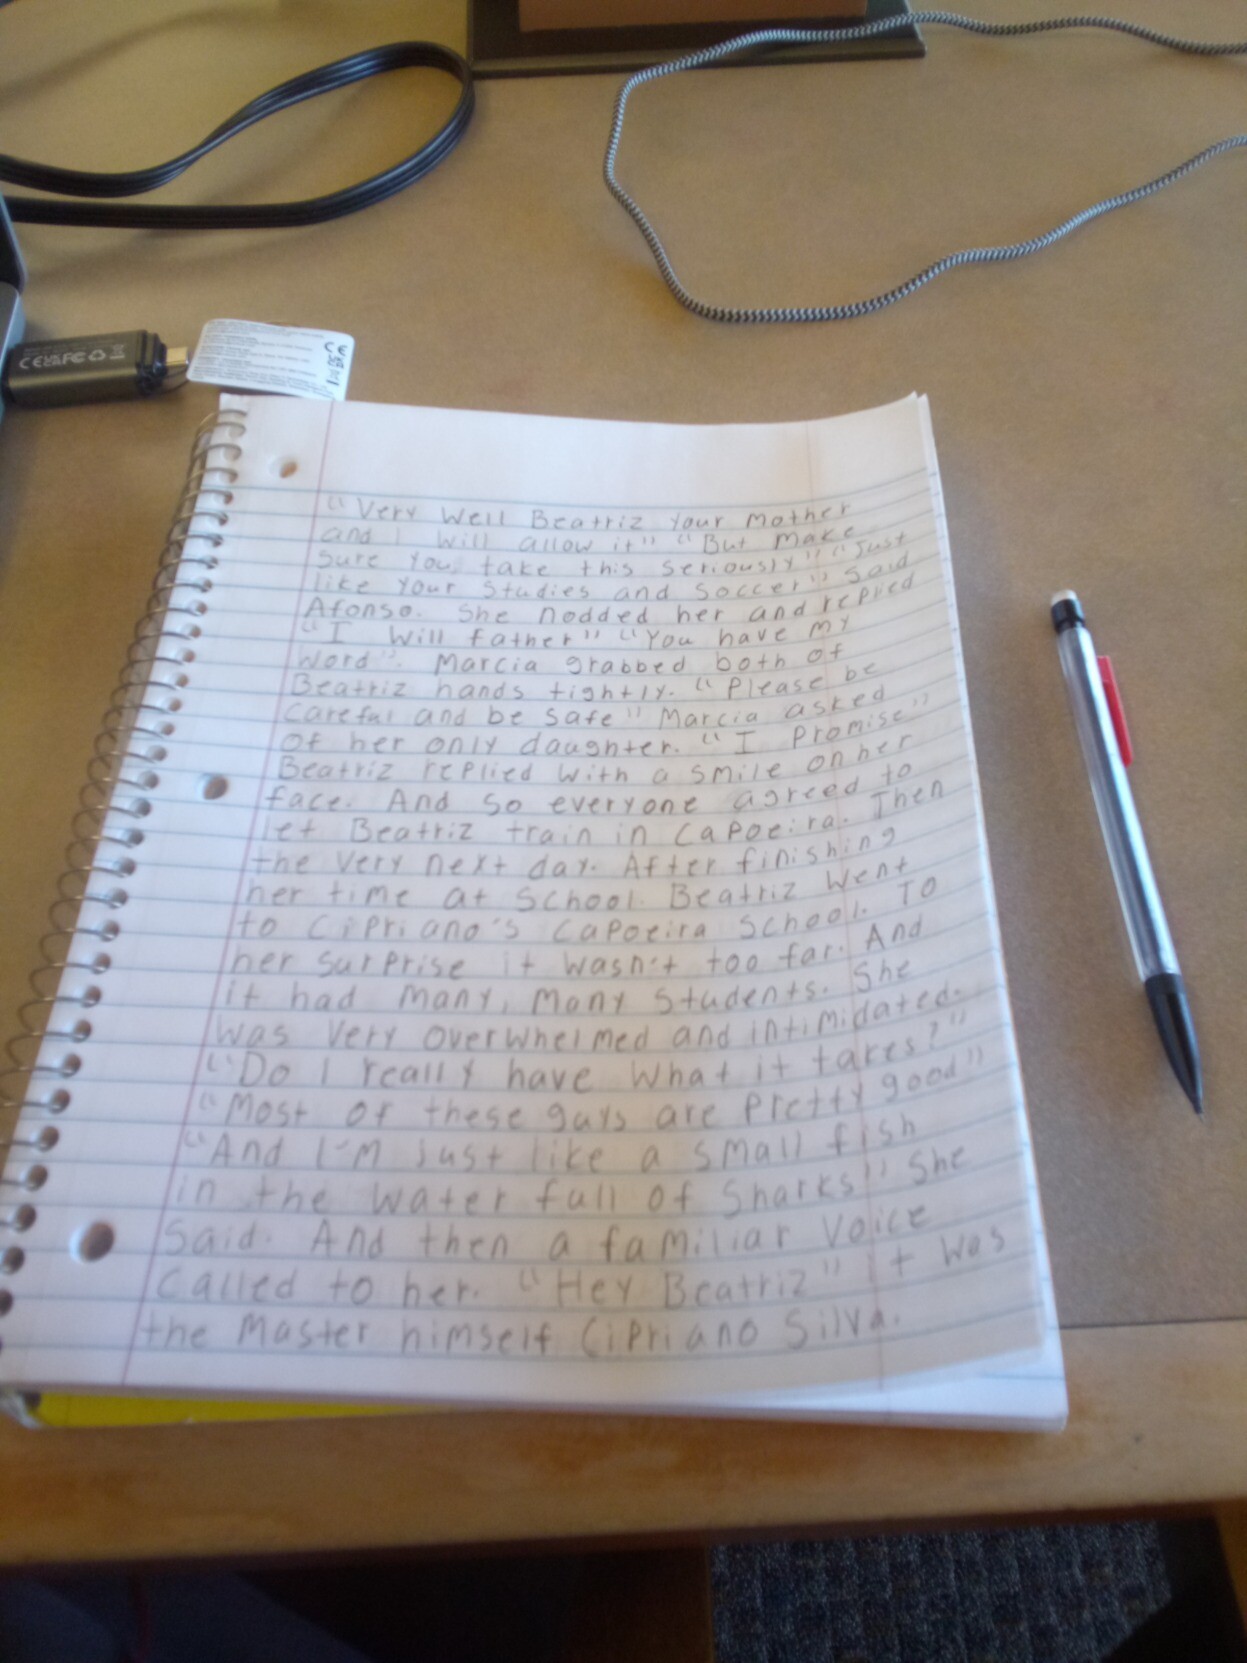 CE FC
CE
"Very Well Beatriz your Mother
and I will allow it" "But Make
sure you take this seriously" "Just
like your studies and soccer" said
Afonso. She nodded her and replied
"I will father" "You have my
word". Marcia grabbed both of
Beatriz hands tightly. "Please be
careful and be safe" Marcia asked
of her only daughter. "I promise"
Beatriz replied with a smile on her
face. And so everyone agreed to
let Beatriz train in Capoeira. Then
the very next day. After finishing
her time at school. Beatriz went
to Cipriano's Capoeira School. To
her surprise it wasn't too far. And
it had many, many students. She
was very overwhelmed and intimidated.
"Do I really have what it takes?"
"Most of these guys are pretty good"
"And I'm just like a small fish
in the water full of sharks" She
said. And then a familiar voice
called to her. "Hey Beatriz" It was
the Master himself Cipriano Silva.